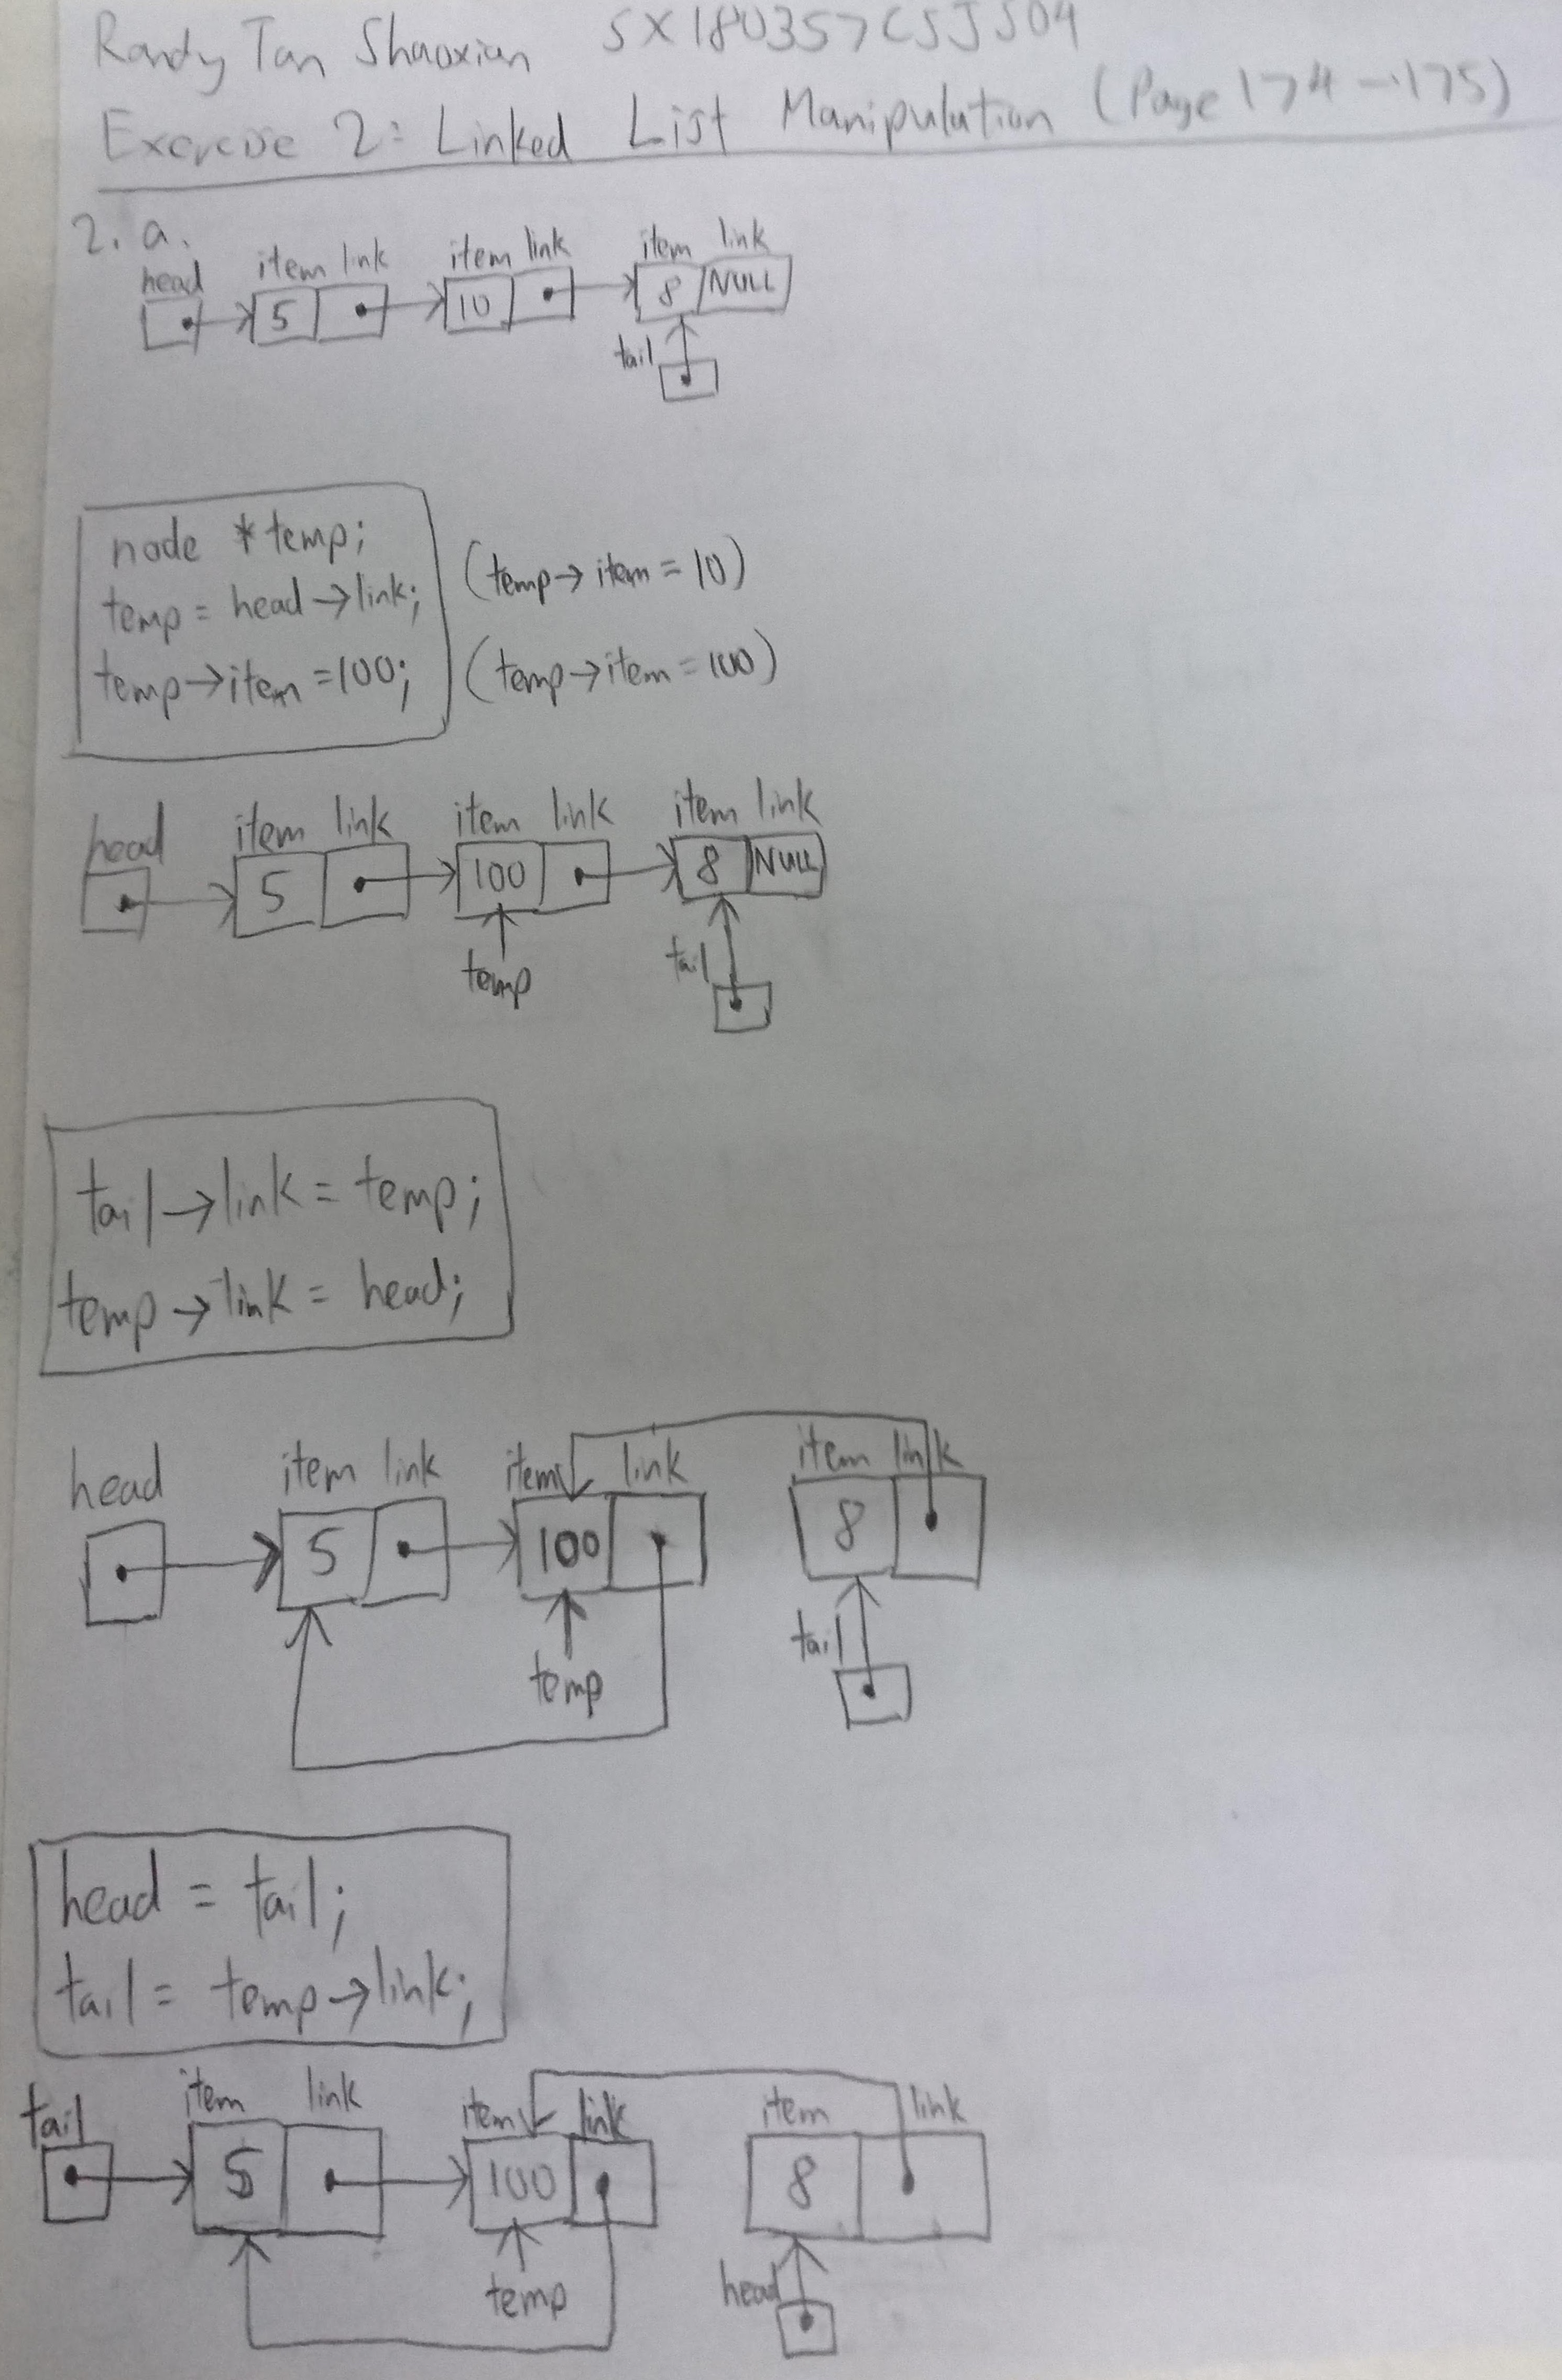 Randy Tan Shaoxian SX180357CSJS04
Exercise 2: Linked List Manipulation (Page 174-175)
2. a.
head item link item link item link
5 10 8 NULL
tail
node *temp;
temp = head→link; (temp→item = 10)
temp→item = 100; (temp→item = 100)
head item link item link item link
5 100 8 NULL
temp tail
tail→link = temp;
temp→link = head;
head item link item link item link
5 100 8
temp tail
head = tail;
tail = temp→link;
tail item link item link item link
5 100 8
temp head